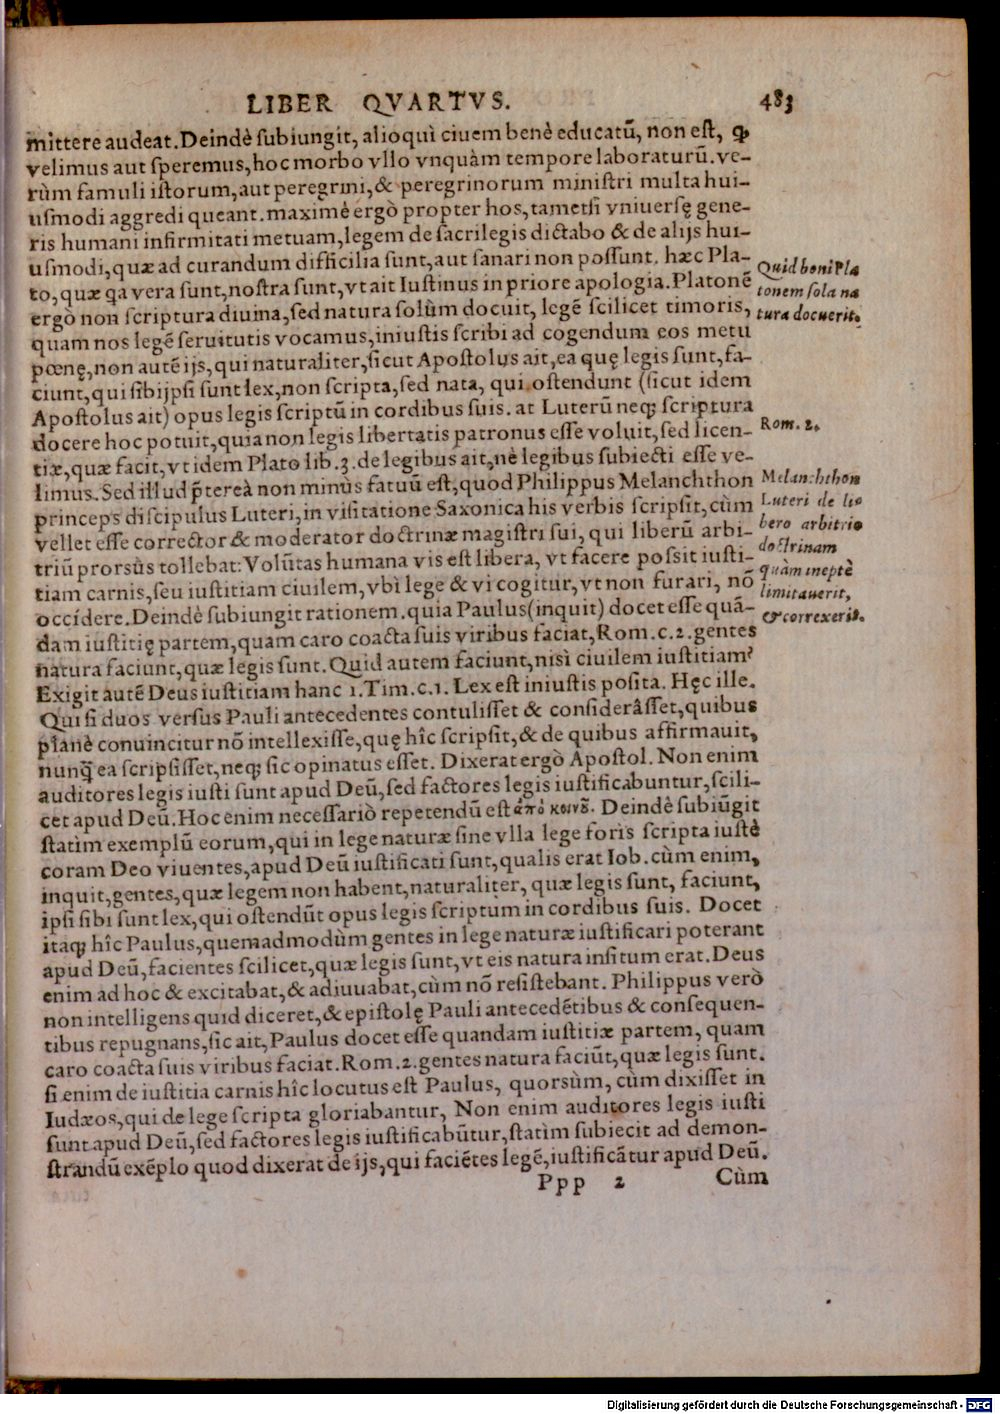 LIBER QVARTVS. 483
mittere audeat. Deindè ſubiungit, alioquì ciuem benè educatũ, non eſt, ꝙ
velimus aut ſperemus, hoc morbo vllo vnquàm tempore laboraturũ. ve-
rùm famuli iſtorum, aut peregrini, & peregrinorum miniſtri multa hui-
uſmodi aggredi queant. maximè ergò propter hos, tametſi vniuerſę gene-
ris humani infirmitati metuam, legem de ſacrilegis dictabo & de alijs hui-
uſmodi, quæ ad curandum difficilia ſunt, aut ſanari non poſſunt. hæc Pla-
to, quæ qa vera ſunt, noſtra ſunt, vt ait Iuſtinus in priore apologia. Platonẽ
ergò non ſcriptura diuina, ſed natura ſolùm docuit, legẽ ſcilicet timoris,
quam nos legẽ ſeruitutis vocamus, iniuſtis ſcribi ad cogendum eos metu
pœnę, non autẽ ijs, qui naturaliter, ſicut Apoſtolus ait, ea quę legis ſunt, fa-
ciunt, qui ſibijpſi ſunt lex, non ſcripta, ſed nata, qui oſtendunt (ſicut idem
Apoſtolus ait) opus legis ſcriptũ in cordibus ſuis. at Luterũ neq; ſcriptura
docere hoc potuit, quia non legis libertatis patronus eſſe voluit, ſed licen-
tiæ, quæ facit, vt idem Plato lib. 3. de legibus ait, nè legibus ſubiecti eſſe ve-
limus. Sed illud p̃tereà non minùs fatuũ eſt, quod Philippus Melanchthon
princeps diſcipulus Luteri, in viſitatione Saxonica his verbis ſcripſit, cùm
vellet eſſe corrector & moderator doctrinæ magiſtri ſui, qui liberũ arbi-
triũ prorsùs tollebat: Volũtas humana vis eſt libera, vt facere poſſit iuſti-
tiam carnis, ſeu iuſtitiam ciuilem, vbì lege & vi cogitur, vt non furari, nõ
occidere. Deindè ſubiungit rationem. quia Paulus (inquit) docet eſſe quã-
dam iuſtitię partem, quam caro coacta ſuis viribus faciat, Rom. c. 2. gentes
natura faciunt, quæ legis ſunt. Quid autem faciunt, niſi ciuilem iuſtitiam?
Exigit autẽ Deus iuſtitiam hanc 1. Tim. c. 1. Lex eſt iniuſtis poſita. Hęc ille.
Qui ſi duos verſus Pauli antecedentes contuliſſet & conſiderâſſet, quibus
planè conuincitur nõ intellexiſſe, quę hîc ſcripſit, & de quibus affirmauit,
nunq̃ ea ſcripſiſſet, neq; ſic opinatus eſſet. Dixerat ergò Apoſtol. Non enim
auditores legis iuſti ſunt apud Deũ, ſed factores legis iuſtificabuntur, ſcili-
cet apud Deũ. Hoc enim neceſſariò repetendũ eſt ἀπὸ κοινȣ͂. Deindè ſubiũgit
ſtatìm exemplũ eorum, qui in lege naturæ ſine vlla lege foris ſcripta iuſtè
coram Deo viuentes, apud Deũ iuſtificati ſunt, qualis erat Iob. cùm enim,
inquit, gentes, quæ legem non habent, naturaliter, quæ legis ſunt, faciunt,
ipſi ſibi ſunt lex, qui oſtendũt opus legis ſcriptum in cordibus ſuis. Docet
itaq; hîc Paulus, quemadmodùm gentes in lege naturæ iuſtificari poterant
apud Deũ, facientes ſcilicet, quæ legis ſunt, vt eis natura inſitum erat. Deus
enim ad hoc & excitabat, & adiuuabat, cùm nõ reſiſtebant. Philippus verò
non intelligens quid diceret, & epiſtolę Pauli antecedẽtibus & conſequen-
tibus repugnans, ſic ait, Paulus docet eſſe quandam iuſtitiæ partem, quam
caro coacta ſuis viribus faciat. Rom. 2. gentes natura faciũt, quæ legis ſunt.
ſi enim de iuſtitia carnis hîc locutus eſt Paulus, quorsùm, cùm dixiſſet in
Iudæos, qui de lege ſcripta gloriabantur, Non enim auditores legis iuſti
ſunt apud Deũ, ſed factores legis iuſtificabũtur, ſtatìm ſubiecit ad demon-
ſtrandũ exẽplo quod dixerat de ijs, qui faciẽtes legẽ, iuſtificãtur apud Deũ.
Ppp 2 Cùm
Quid boni Pla
tonem ſola na
tura docuerit.
Rom. 2.
Melanchthon
Luteri de li-
bero arbitrio
doctrinam
quàm ineptè
limitauerit,
& correxerit.
Digitalisierung gefördert durch die Deutsche Forschungsgemeinschaft - DFG